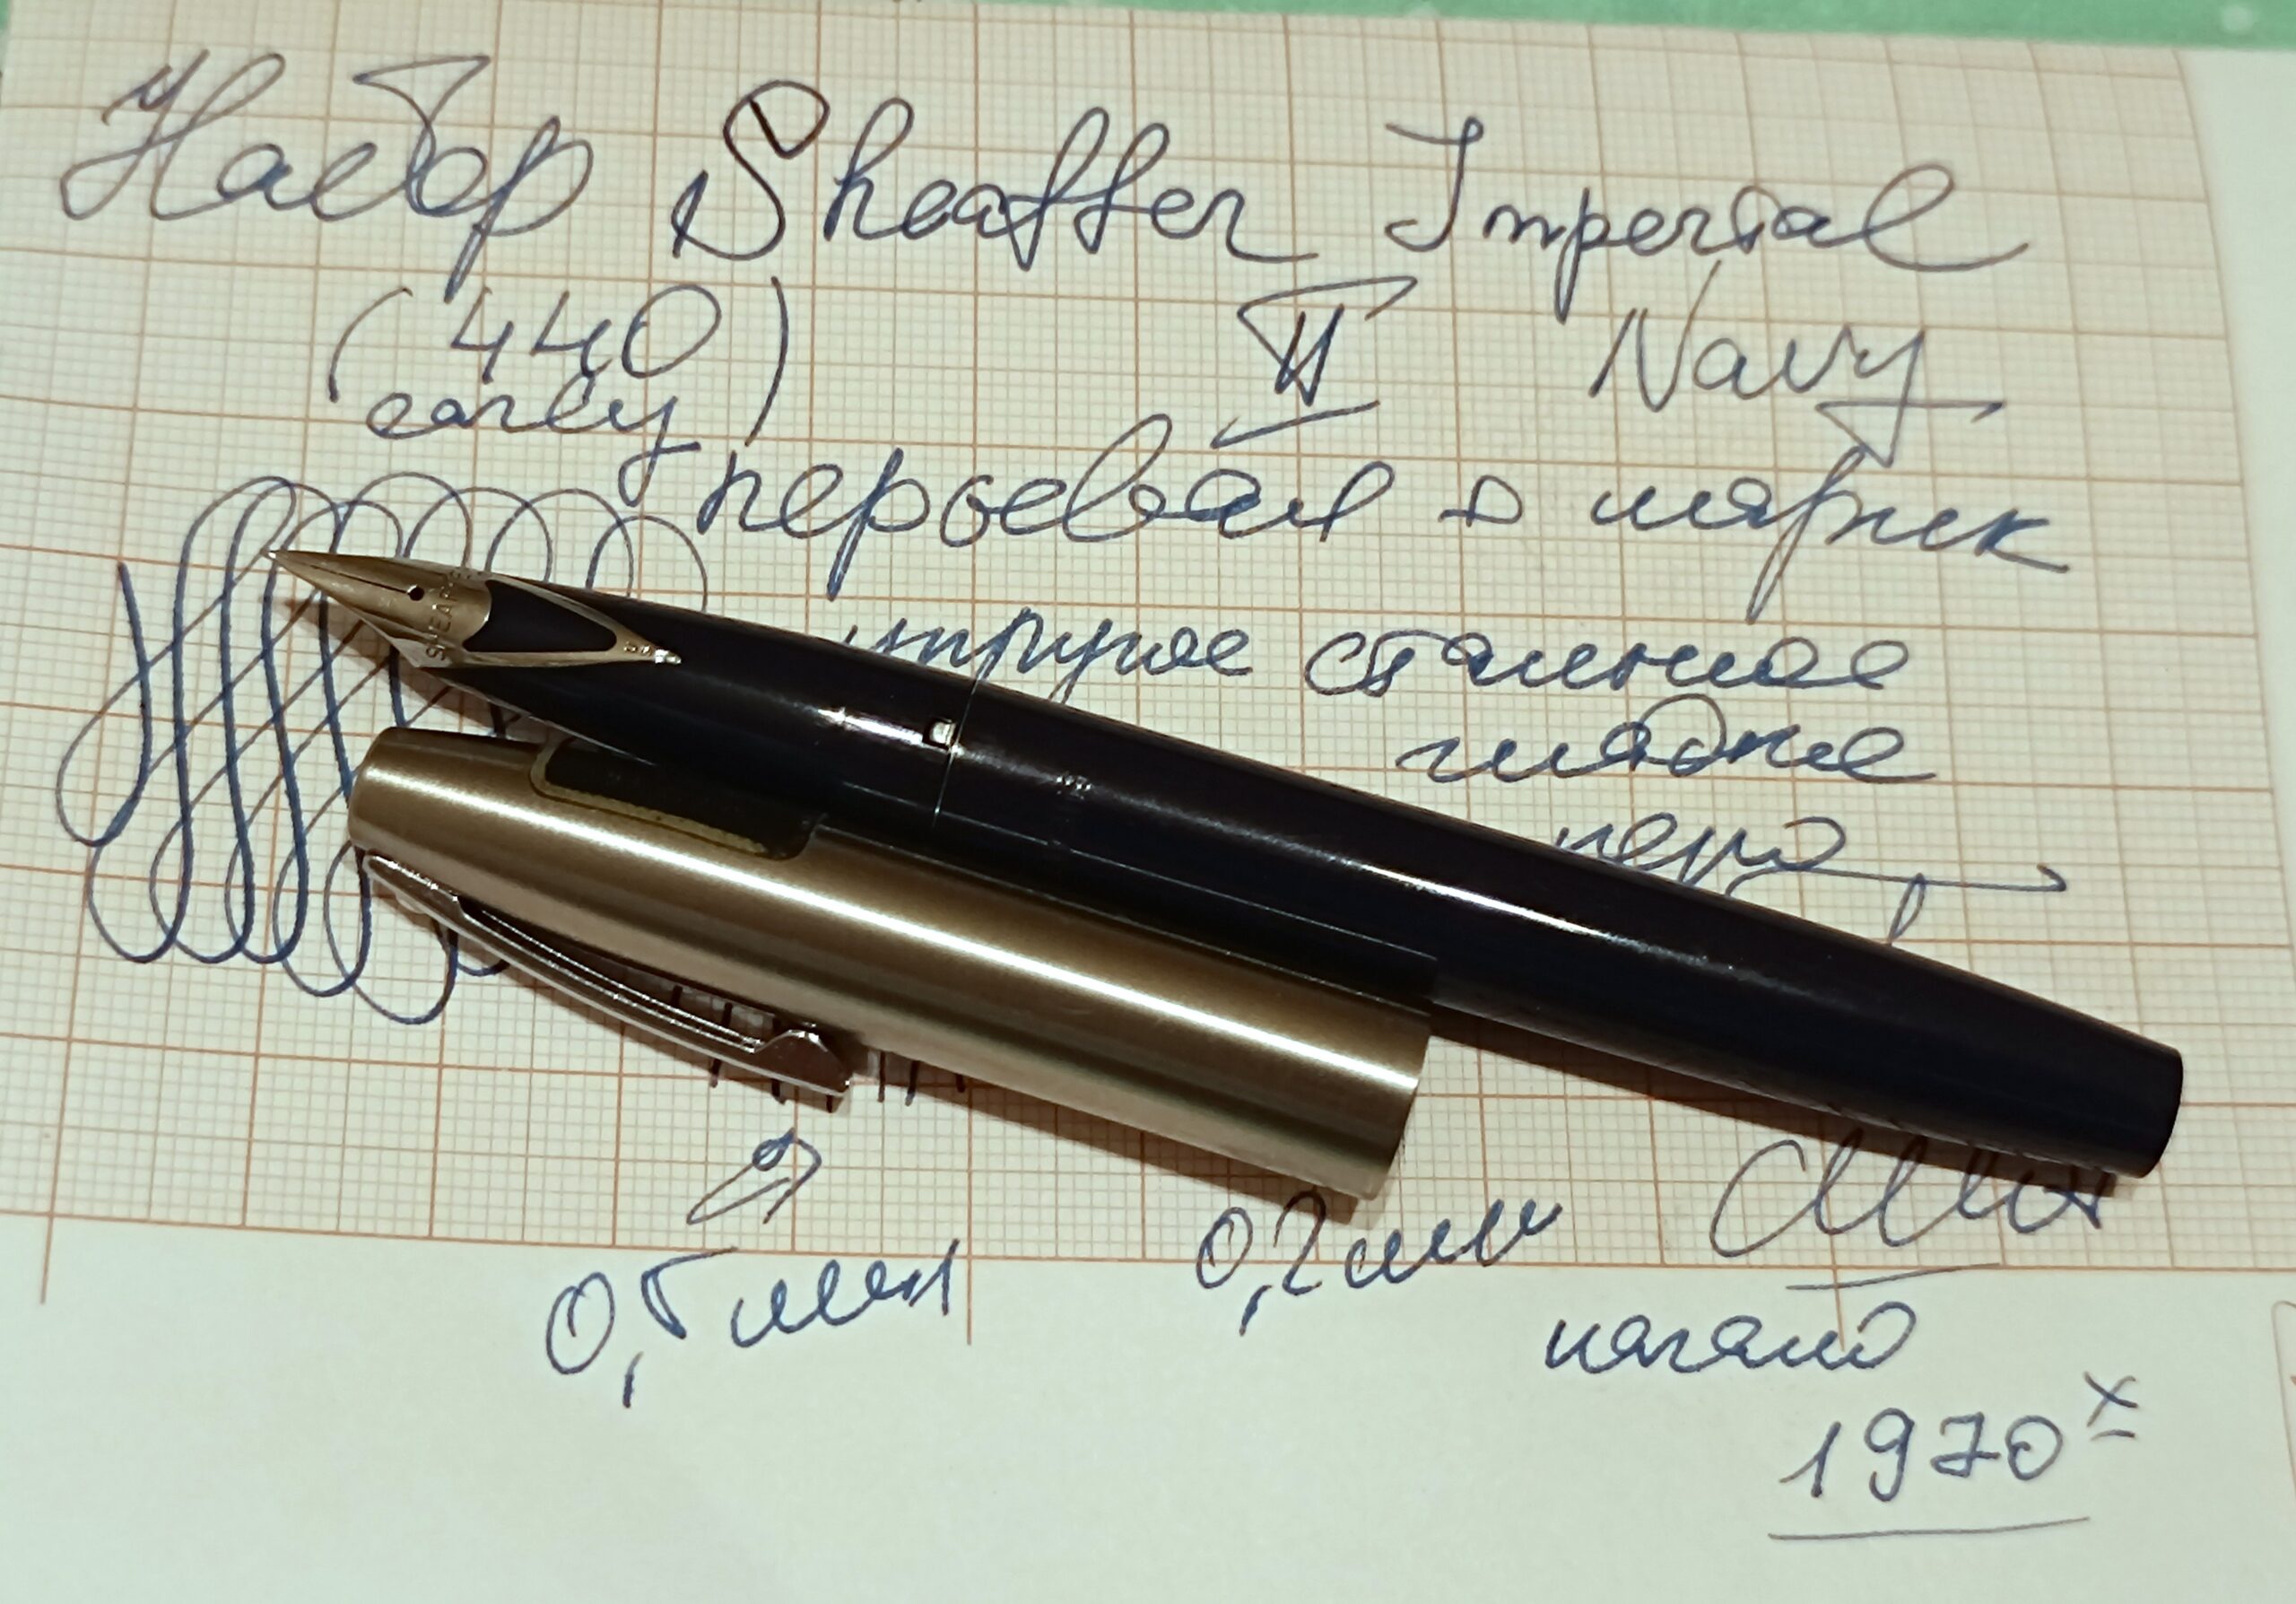 Набор Sheaffer Imperial
(440 early) VI Navy
перьевая + шарик
упругое стальное
гладкое
перо
SHEAFFER
0,5 мм
0,2 мм
США
начало
1970х